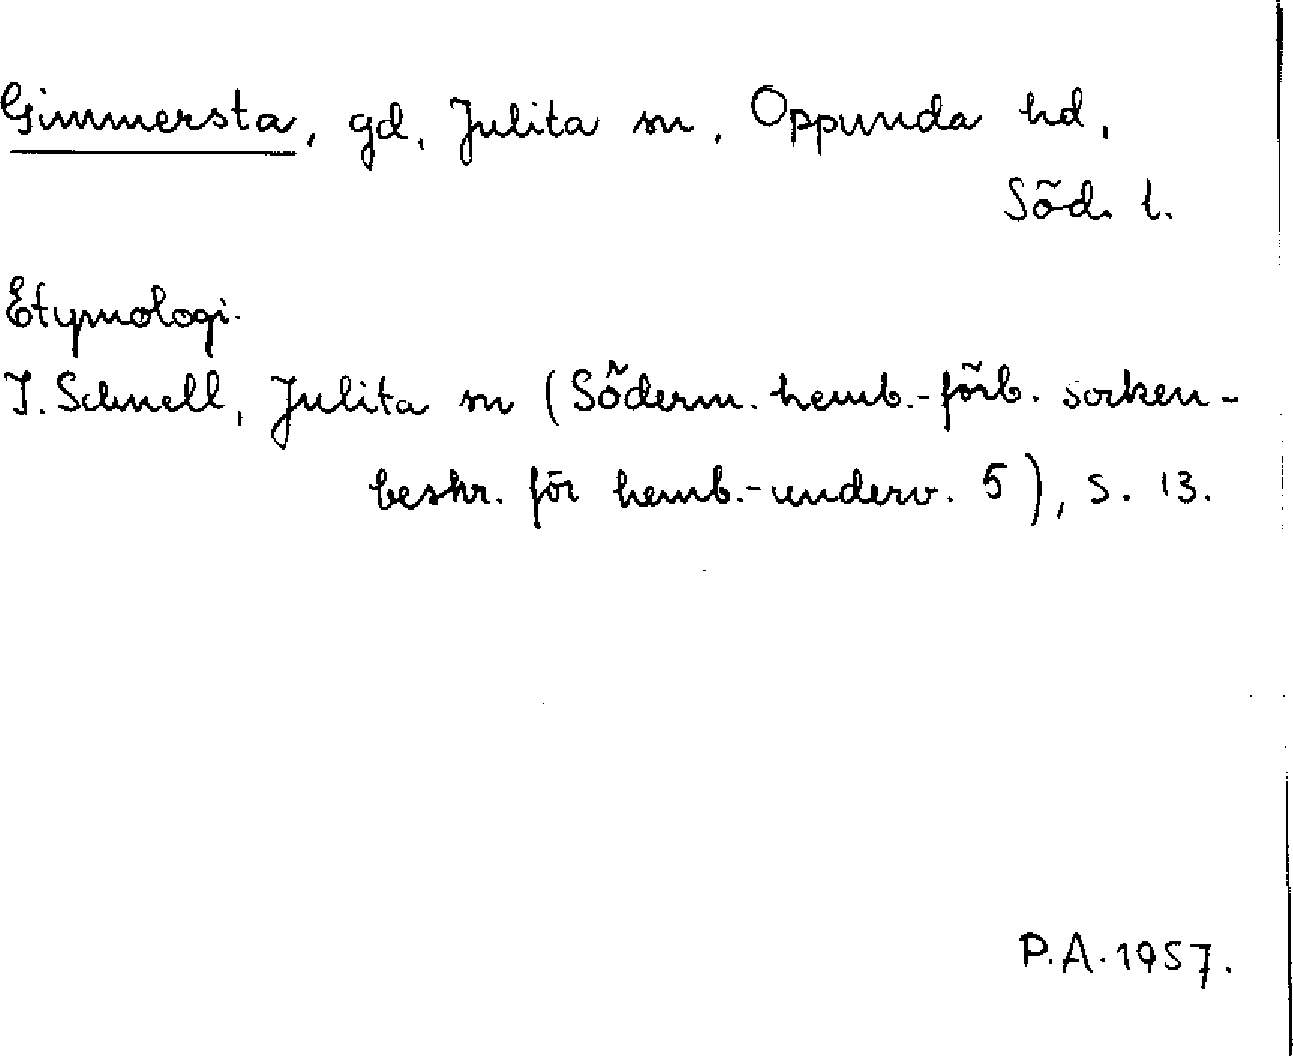 Gimmersta, gd, Julita sn, Oppunda hd,
Söd. l.
Etymologi.
I. Schnell, Julita sn (Söderm. hemb.-förb. socken-
beskr. för hemb.-underv. 5), s. 13.
P.A. 1957.